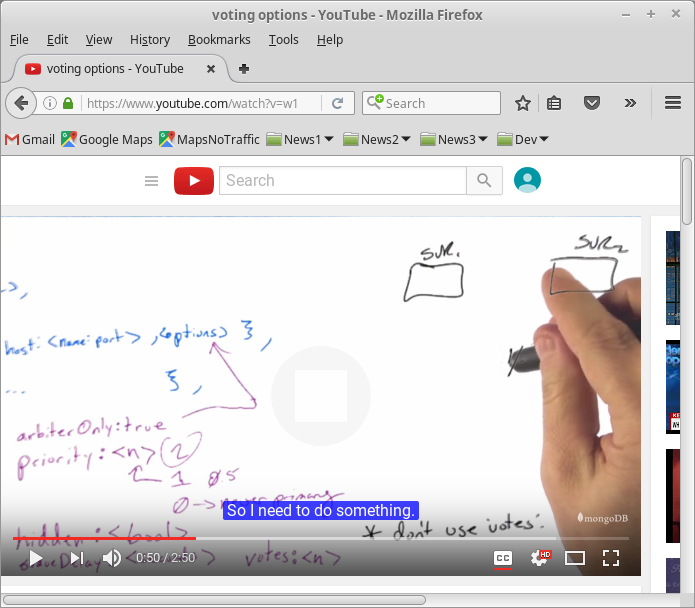 voting options - YouTube - Mozilla Firefox
File Edit View History Bookmarks Tools Help
voting options - YouTube
https://www.youtube.com/watch?v=w1
Search
Gmail Google Maps MapsNoTraffic News1 News2 News3 Dev
Search
SVR1
SVR2
host: <name:port>, <options> },
...
},
arbiterOnly: true
priority: <n> 2
1 0.5
0 -> never primary
So I need to do something.
mongoDB
* don't use 'votes'.
hidden: <bool>
votes: <n>
0:50 / 2:50
CC
HD